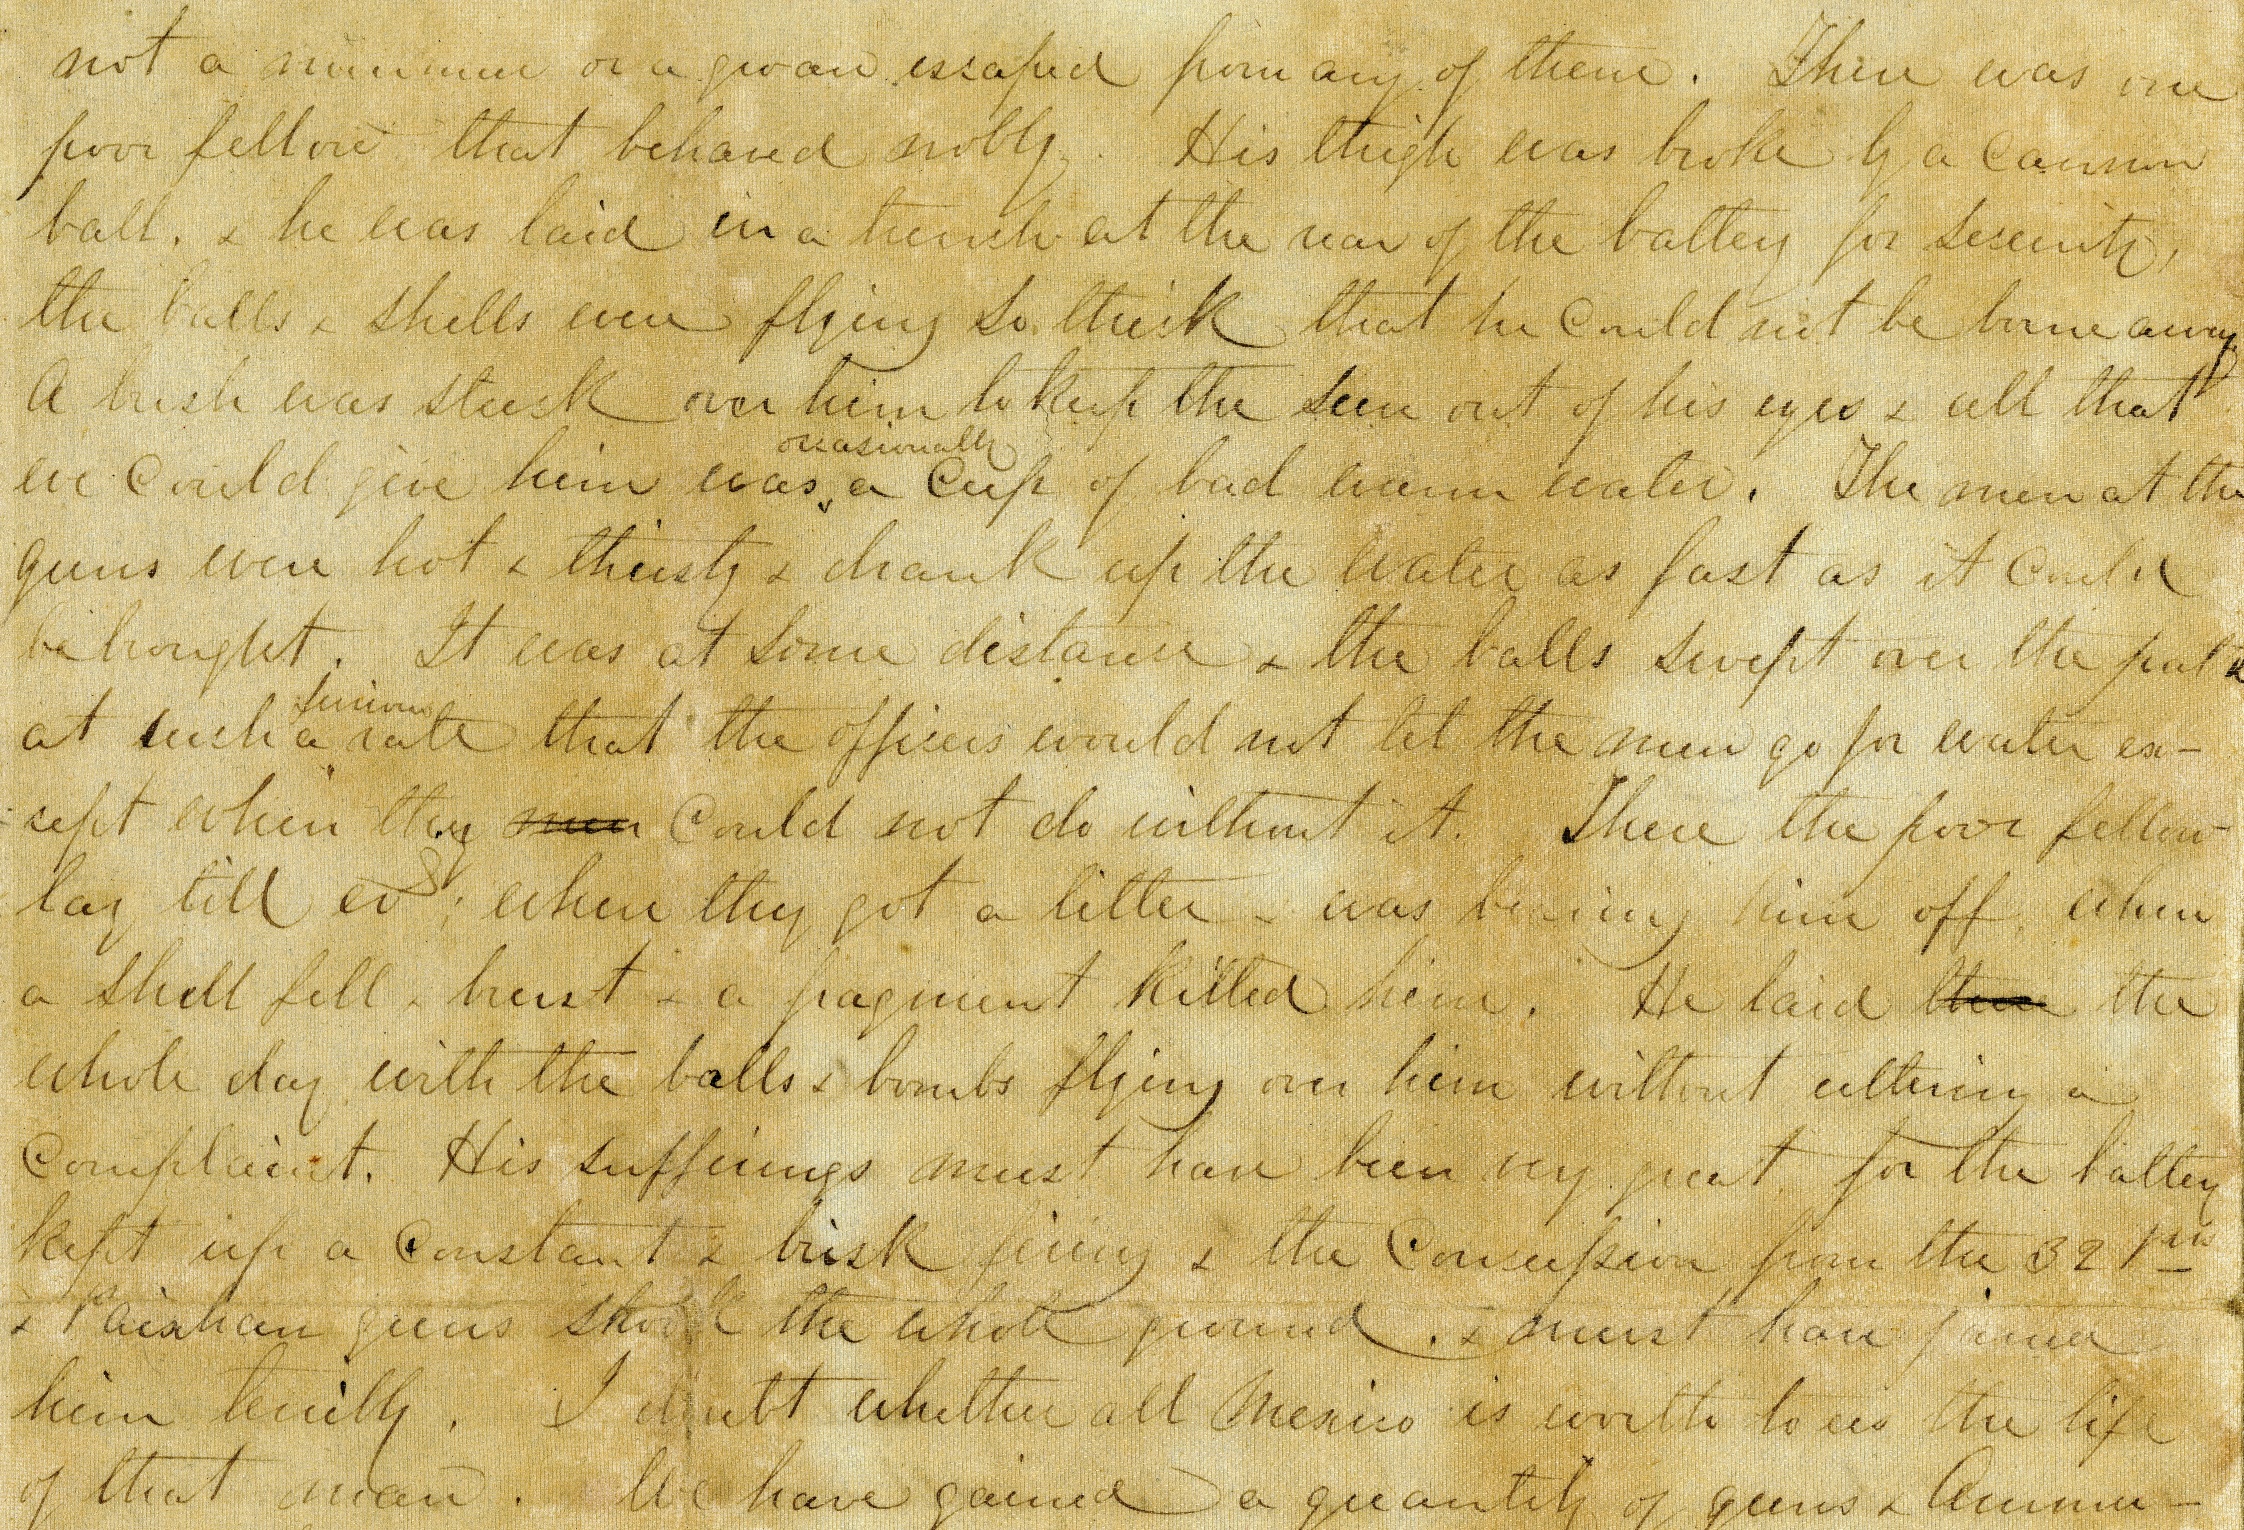 not a murmur or a groan escaped from any of them. There was one
poor fellow that behaved nobly. His thigh was broke by a cannon
ball. & he was laid in a trench at the rear of the battery for security,
the balls & shells were flying so thick that he could not be borne away.
A brush was stuck over him to keep the sun out of his eyes & all that
we could give him was occasionally a cup of bad warm water. The men at the
guns were hot & thirsty & drank up the water as fast as it could
be brought. It was at some distance & the balls swept over the path
at such a furious rate that the officers would not let the men go for water ex-
cept when they men could not do without it. There the poor fellow
lay till evg; when they got a litter & was bearing him off when
a shell fell & burst & a fragment killed him. He laid there the
whole day with the balls & bombs flying over him without uttering a
complaint. His sufferings must have been very great for the battery
kept up a constant & brisk firing & the concussion from the 32 prs
& Paixhan guns shook the whole ground. & must have jarred
him terribly. I doubt whether all Mexico is worth to us the life
of that man. We have gained a quantity of guns & Ammu-